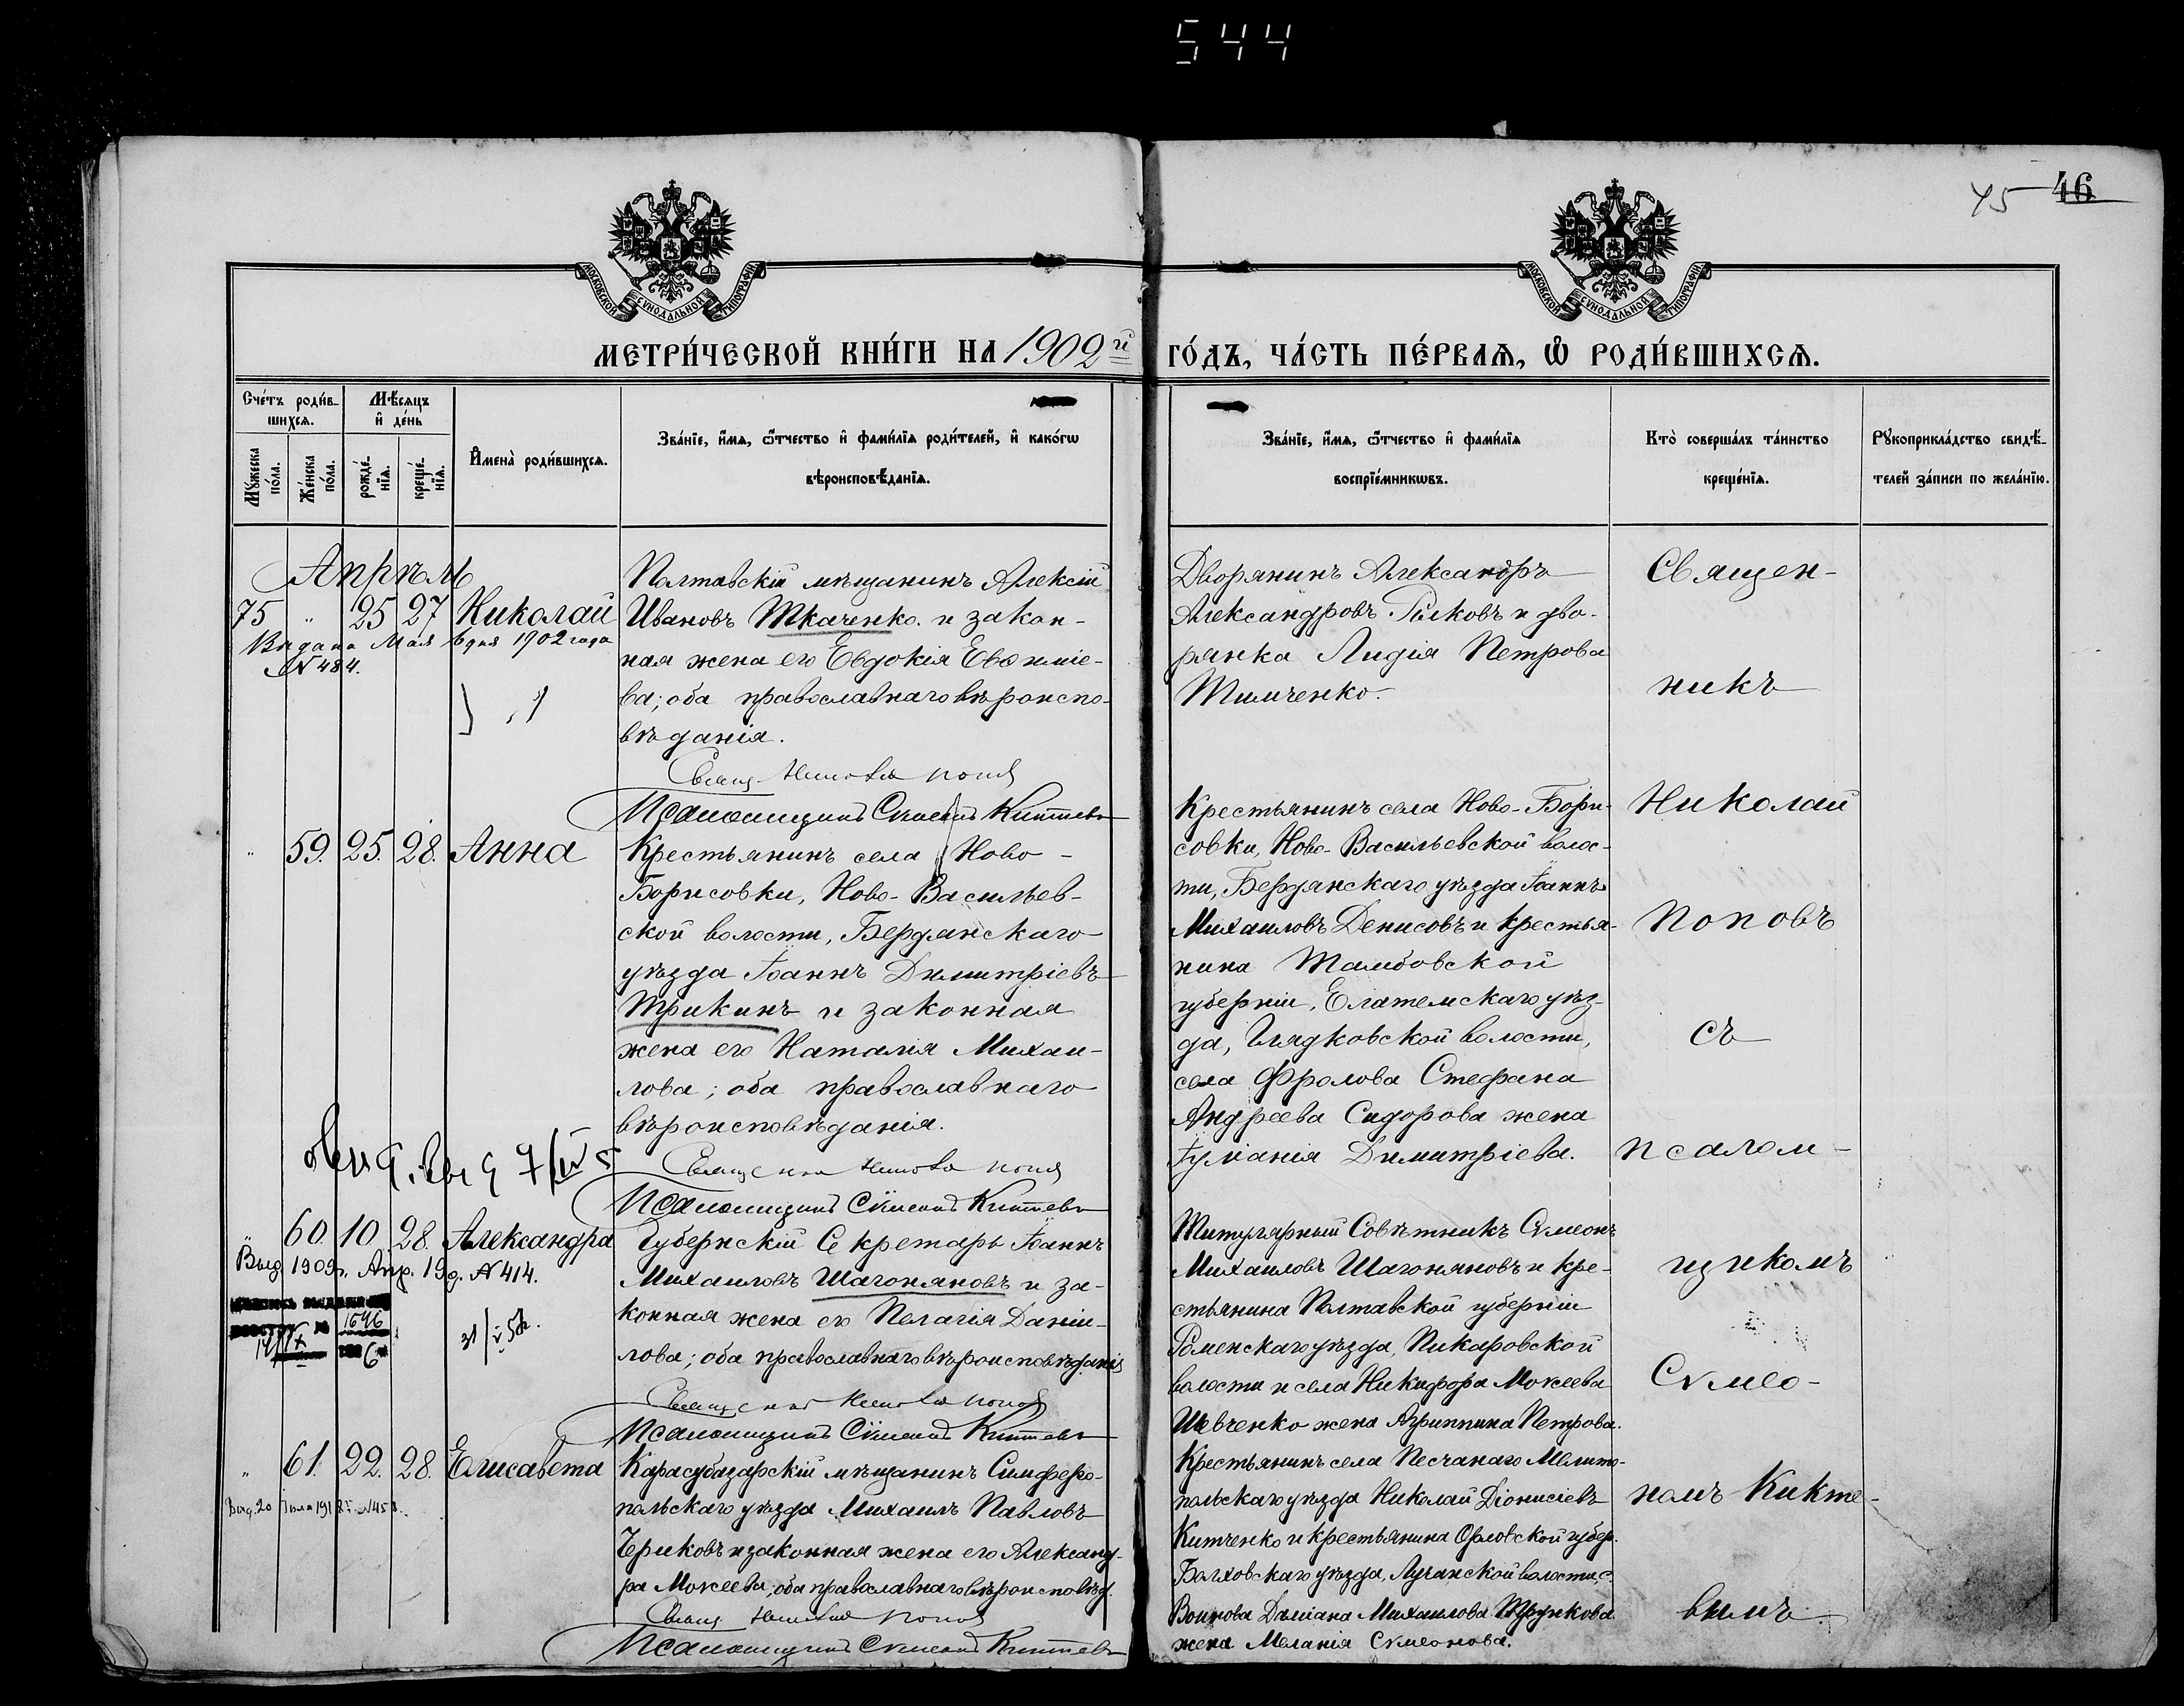 544
45 46
МОСКОВСКОЙ СУНОДАЛЬНОЙ ТИПОГРАФІИ
МОСКОВСКОЙ СУНОДАЛЬНОЙ ТИПОГРАФІИ
МЕТРИ́ЧЕСКОЙ КНИ́ГИ НА 1902й ГО́ДЪ, ЧА́СТЬ ПЕ́РВАЯ, Ѡ РОДИ́ВШИХСЯ.
Сче́тъ роди́в-
шихся.
Мѣсяцъ
и де́нь
Му́жеска
по́ла.
Же́нска
по́ла.
рожде́-
нїя.
креще́-
нїя.
Имена̀ роди́вшихся.
Зва́нїе, и́мя, ѻ́тчество и фами́лїя роди́телей, и како́гѡ
вѣроисповѣ́данїя.
Зва́нїе, и́мя, ѻ́тчество и фами́лїя
воспрїе́мникѡвъ.
Кто̀ соверша́лъ та́инство
креще́нїя.
Рукоприкла́дство свидѣ́-
телей за́писи по жела́нїю.
Апрѣль
75 " 25 27 Николай
Выдана Мая 6 дня 1902 года
№ 484.
Полтавскій мѣщанинъ Алексій
Ивановъ Ткаченко и закон-
ная жена его Евдокія Евѳиміе-
ва; оба православнаго вѣроиспо-
вѣданія.
Свящ. Николай Попов
Псаломщикъ Сѵмеонъ Киктевъ
Дворянинъ Александръ
Александровъ Рыковъ и дво-
рянка Лидія Петрова
Тимченко.
" 59. 25. 28. Анна
Крестьянинъ села Ново-
Борисовки, Ново-Васильев-
ской волости, Бердянскаго
уѣзда Іоаннъ Димитріевъ
Трикинъ и законная
жена его Наталія Михаи-
лова; оба православнаго
вѣроисповѣданія.
Священник Николай Попов
Псаломщикъ Сѵмеонъ Киктевъ
Крестьянинъ села Ново-Бори-
совки, Ново-Васильевской волос-
ти, Бердянскаго уѣзда Іоаннъ
Михаиловъ Денисовъ и крестья-
нина Тамбовской
губерніи, Елатемскаго уѣз-
да, Глядковской волости,
села Фролова Стефана
Андреева Сидорова жена
Іуліанія Димитріева.
" 60. 10. 28. Александра
Выд. 1909 г. Апр. 19 д. № 414.
1646
Губернскій Секретарь Іоаннъ
Михаиловъ Шагоняновъ и за-
конная жена его Пелагія Даніи-
лова; оба православнаго вѣроисповѣданія
Священник Николай Попов
Псаломщикъ Сѵмеонъ Киктевъ
Титулярный Совѣтникъ Сѵмеонъ
Михаиловъ Шагоняновъ и кре-
стьянина Полтавской губерніи
Роменскаго уѣзда, Пикаровской
волости и села Никифора Мокеева
Шевченко жена Агриппина Петрова.
" 61. 22. 28. Елисавета
Выд. 20 Іюля 191
Карасубазарскій мѣщанинъ Симферо-
польскаго уѣзда Михаилъ Павловъ
Чериковъ и законная жена его Александ-
ра Мокеева; оба православнаго вѣроисповѣд.
Свящ. Николай Попов
Псаломщикъ Сѵмеонъ Киктевъ
Крестьянинъ села Песчанаго Мелито-
польскаго уѣзда Николай Діонисіевъ
Китченко и крестьянина Орловской губер.
Болховскаго уѣзда, Лучанской волости, с.
Воинова Даміана Михаилова Трункова
жена Меланія Сѵмеонова.
Священ-
никъ
Николай
Поповъ
съ
псалом-
щикомъ
Сѵмео-
номъ Кикте-
вымъ